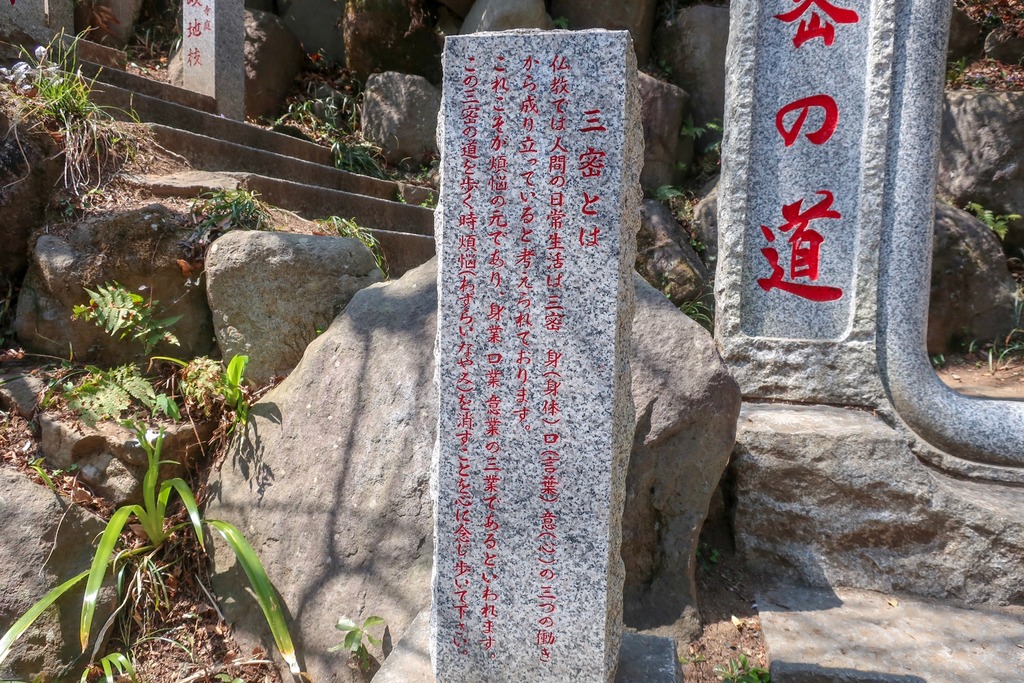 三密とは
仏教では人間の日常生活は三密 身(身体)口(言葉)意(心)の三つの働き
から成り立っていると考えられております。
これこそが煩悩の元であり、身業 口業 意業の三業であるといわれます。
この三密の道を歩く時煩悩(わずらいなやみ)を消すことを心に念じ歩いて下さい。
密の道
地検